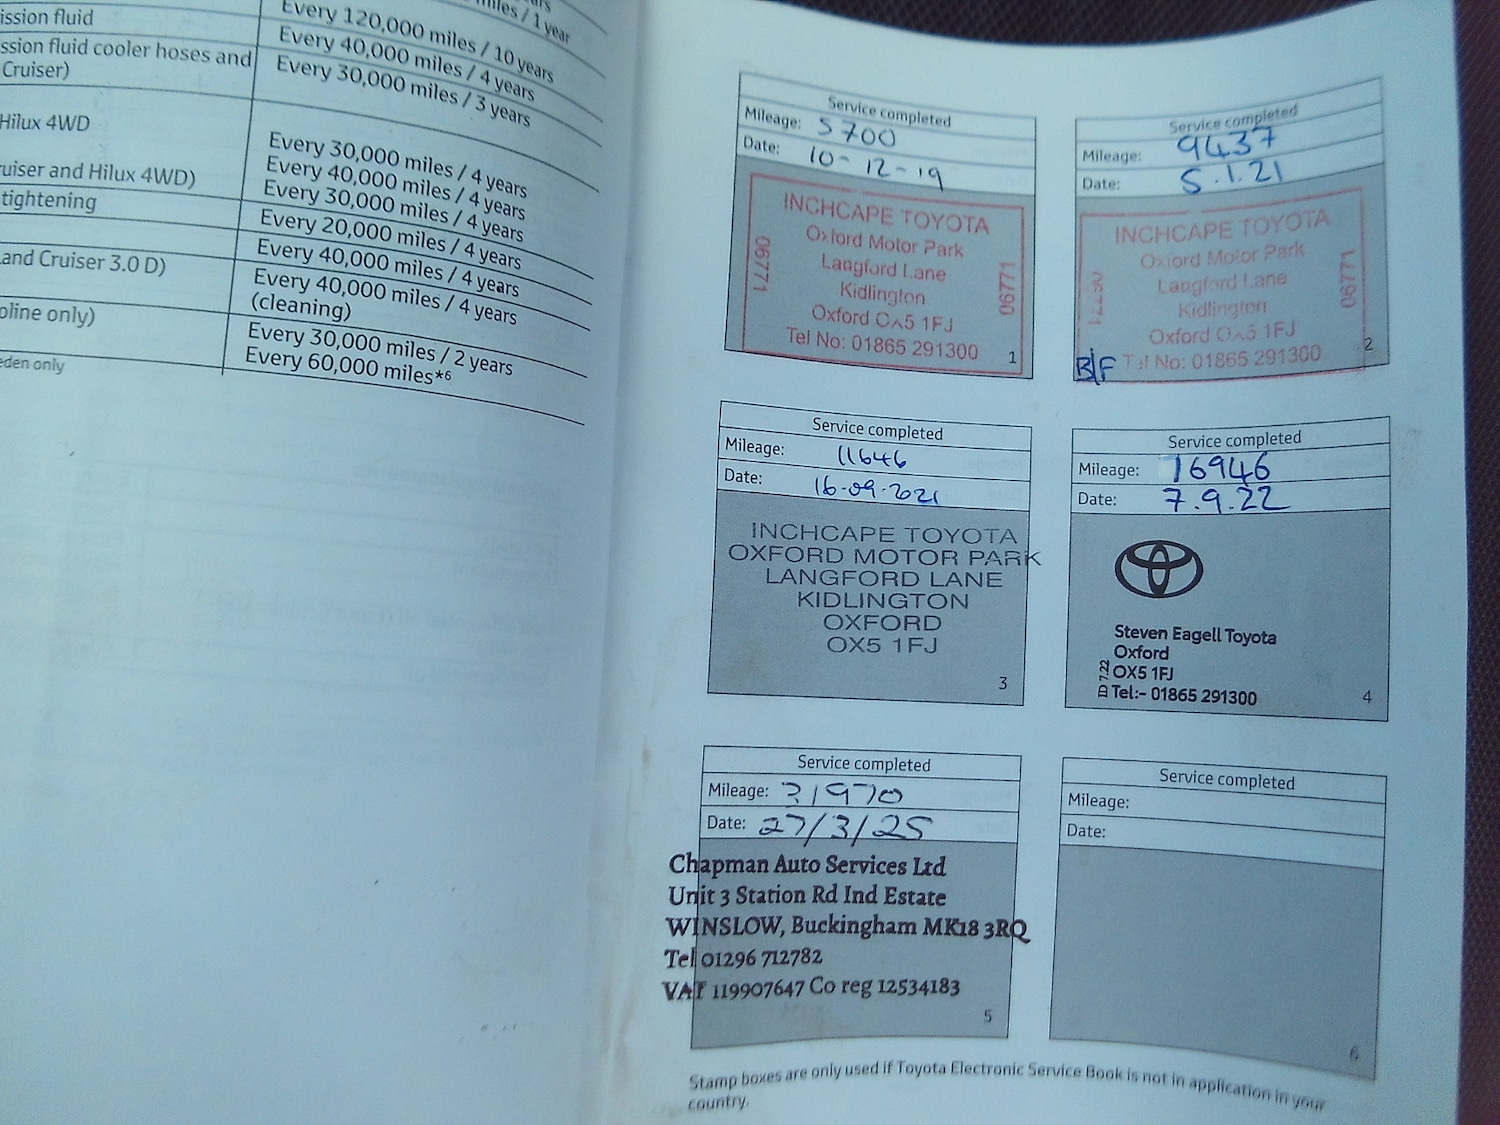 miles / 1 year
ission fluid
Every 120,000 miles / 10 years
ssion fluid cooler hoses and
Every 40,000 miles / 4 years
Cruiser)
Every 30,000 miles / 3 years
Hilux 4WD
Every 30,000 miles / 4 years
Every 40,000 miles / 4 years
ruiser and Hilux 4WD)
Every 30,000 miles / 4 years
tightening
Every 20,000 miles / 4 years
Every 40,000 miles / 4 years
and Cruiser 3.0 D)
Every 40,000 miles / 4 years
(cleaning)
oline only)
Every 30,000 miles / 2 years
Every 60,000 miles*6
eden only
Service completed
Mileage: 5700
Date: 10-12-19
INCHCAPE TOYOTA
Oxford Motor Park
Langford Lane
Kidlington
Oxford OX5 1FJ
Tel No: 01865 291300
06771
06771
1
Service completed
Mileage: 9437
Date: 5.1.21
INCHCAPE TOYOTA
Oxford Motor Park
Langford Lane
Kidlington
Oxford OX5 1FJ
B/F Tel No: 01865 291300
06771
06771
2
Service completed
Mileage: 11646
Date: 16-09-2021
INCHCAPE TOYOTA
OXFORD MOTOR PARK
LANGFORD LANE
KIDLINGTON
OXFORD
OX5 1FJ
3
Service completed
Mileage: 16946
Date: 7.9.22
Steven Eagell Toyota
Oxford
OX5 1FJ
Tel:- 01865 291300
ID 7.22
4
Service completed
Mileage: 31970
Date: 27/3/25
Chapman Auto Services Ltd
Unit 3 Station Rd Ind Estate
WINSLOW, Buckingham MK18 3RQ
Tel 01296 712782
VAT 119907647 Co reg 12534183
5
Service completed
Mileage:
Date:
6
Stamp boxes are only used if Toyota Electronic Service Book is not in application in your
country.